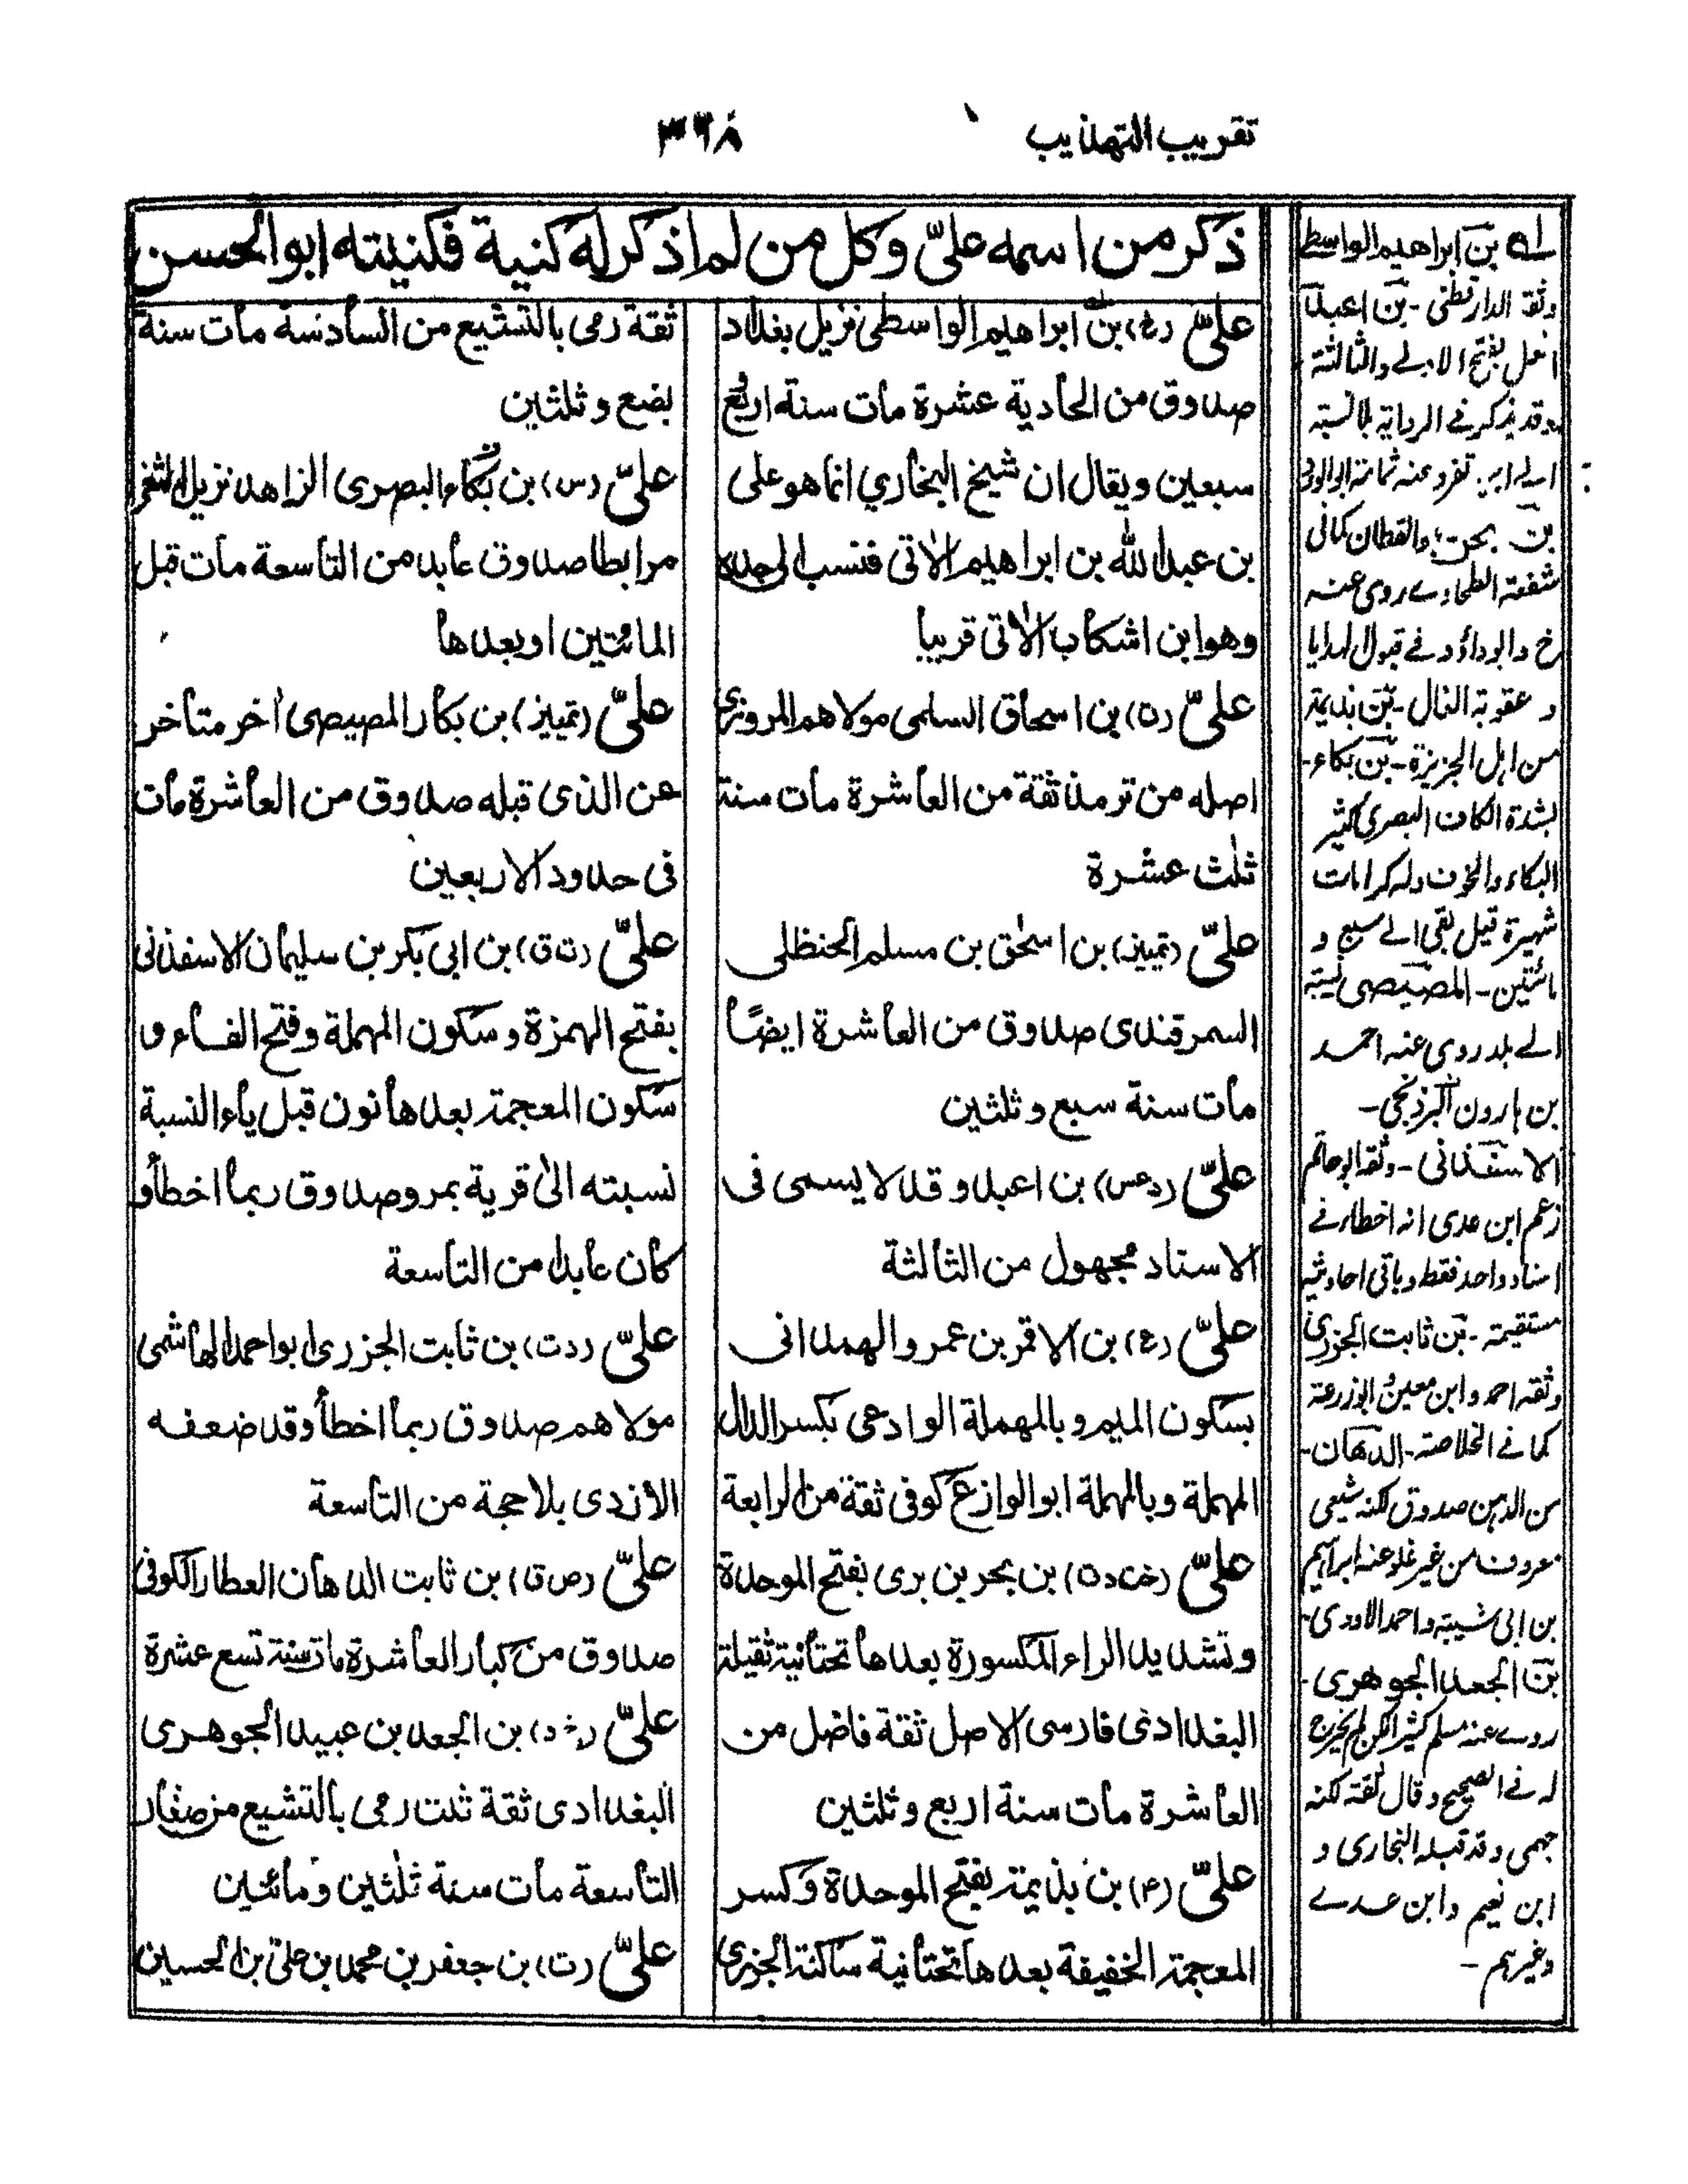 تقريب التهذيب
٣٦٨
ذكر من اسمه علىّ وكل من لم اذكر له كنية فكنيته ابو الحسن
علىّ (خ) بن ابراهيم الواسطى نزيل بغداد
صدوق من الحادية عشرة مات سنة اربع
سبعين ويقال ان شيخ البخاري انما هو على
بن عبد الله بن ابراهيم الاتى فنسب الى جده
وهو ابن اشكاب الاتى قريبا
علىّ (ت) بن اسحاق السلمى مولاهم المروزى
اصله من ترمذ ثقة من العاشرة مات سنة
ثلث عشرة
علىّ (تمييز) بن اسحٰق بن مسلم الحنظلى
السمرقندى صدوق من العاشرة ايضًا
مات سنة سبع وثلثين
علىّ (دعس) بن اعبد وقد لا يسمى فى
الاسناد مجهول من الثالثة
علىّ (ع) بن الاقمر بن عمرو الهمدانى
بسكون الميم وبالمهملة الوادعى بكسر الدال
المهملة وبالمهملة ابو الوازع كوفى ثقة من الرابعة
علىّ (خت د ت) بن بحر بن برى بفتح الموحدة
وتشديد الراء المكسورة بعدها تحتانية ثقيلة
البغدادى فارسى الاصل ثقة فاضل من
العاشرة مات سنة اربع وثلثين
علىّ (۴) بن بذيمة بفتح الموحدة وكسر
المعجمة الخفيفة بعدها تحتانية ساكنة الجزرى
ثقة رمى بالتشيع من السادسة مات سنة
بضع وثلثين
علىّ (س) بن بكاء البصرى الزاهد نزيل الثغر
مرابطا صدوق عابد من التاسعة مات قبل
المائتين او بعدها
علىّ (تمييز) بن بكار المصيصى اخر متاخر
عن الذى قبله صدوق من العاشرة مات
فى حدود الاربعين
علىّ (ت ق) بن ابى بكر بن سليمان الاسفذنى
بفتح الهمزة وسكون المهملة وفتح الفاء و
سكون المعجمة بعدها نون قبل ياء النسبة
نسبته الى قرية بمرو صدوق ربما اخطأ و
كان عابدا من التاسعة
علىّ (د ت) بن ثابت الجزرى ابو احمد الهاشمى
مولاهم صدوق ربما اخطأ وقد ضعفه
الازدى بلا حجة من التاسعة
علىّ (ص ق) بن ثابت الدهان العطار الكوفى
صدوق من كبار العاشرة مات سنة تسع عشرة
علىّ (خ د) بن الجعد بن عبيد الجوهرى
البغدادى ثقة ثبت رمى بالتشيع من صغار
التاسعة مات سنة ثلٰثين ومائتين
علىّ (ت) بن جعفر بن محمد بن على بن الحسين
بن ابراهيم الواسطى
وثقه الدارقطنى - بن اعبد
افعل بفتح الاولى والثالثة
وقد يذكر فى الرواية بلا تسمية
بن بحر القطان كما فى
روى عنه
خ و ابو داؤد فى قبول الهدايا
و عقوبة الغال - بن بذيمة
من اهل الجزيرة - بن بكاء -
بشدة الكاف البصرى كثير
البكاء والحزن وله كرامات
شهيرة قيل بقى الى سبع و
مائتين - المصيصى نسبة
الى بلد روى عنه احمد
بن هارون البرذنجى -
الاسفذنى - وثقه ابو حاتم
زعم ابن عدى انه اخطاء فى
اسناد واحد فقط وباقى احاديثه
مستقيمة - بن ثابت الجزرى
وثقه احمد وابن معين و ابو زرعة
كما فى الخلاصة - الدهان -
من الدهن صدوق لكنه شيعى
معروف من غير غلو عنه ابراهيم
بن ابى شيبة واحمد الاودى -
بن الجعد الجوهرى -
روى عنه مسلم كثيرا لكن لم يخرج
له فى الصحيح وقال ثقة لكنه
جهمى وقد قبله البخارى و
ابن نعيم وابن عدى
وغيرهم -